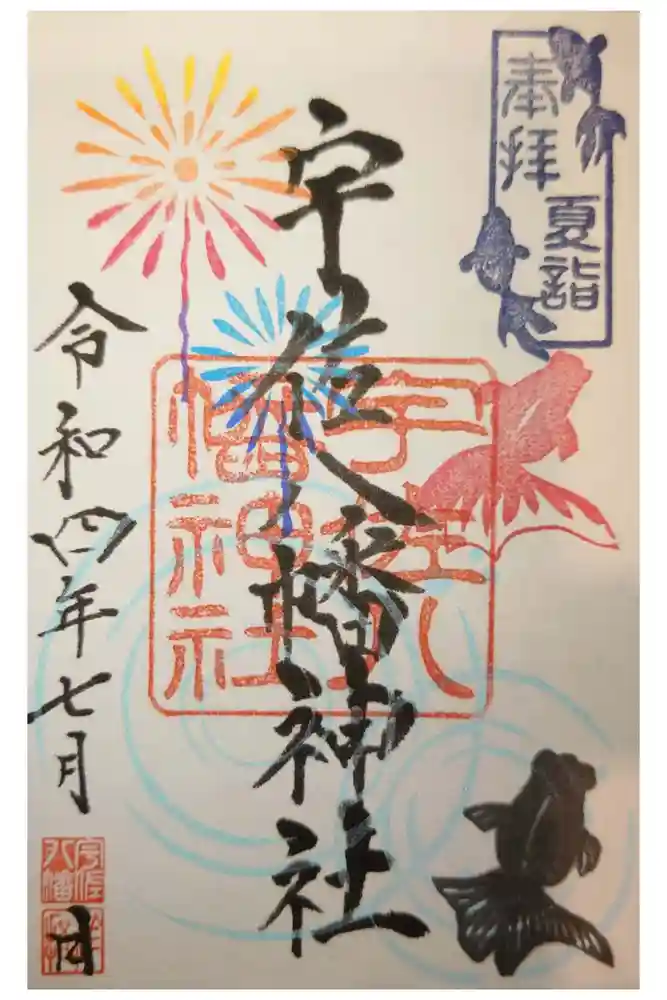 奉拝
夏詣
宇佐八幡神社
宇佐八
幡神社
令和四年七月
宇佐
八幡
日